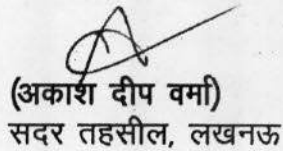 (अकाश दीप वर्मा)
सदर तहसील, लखनऊ